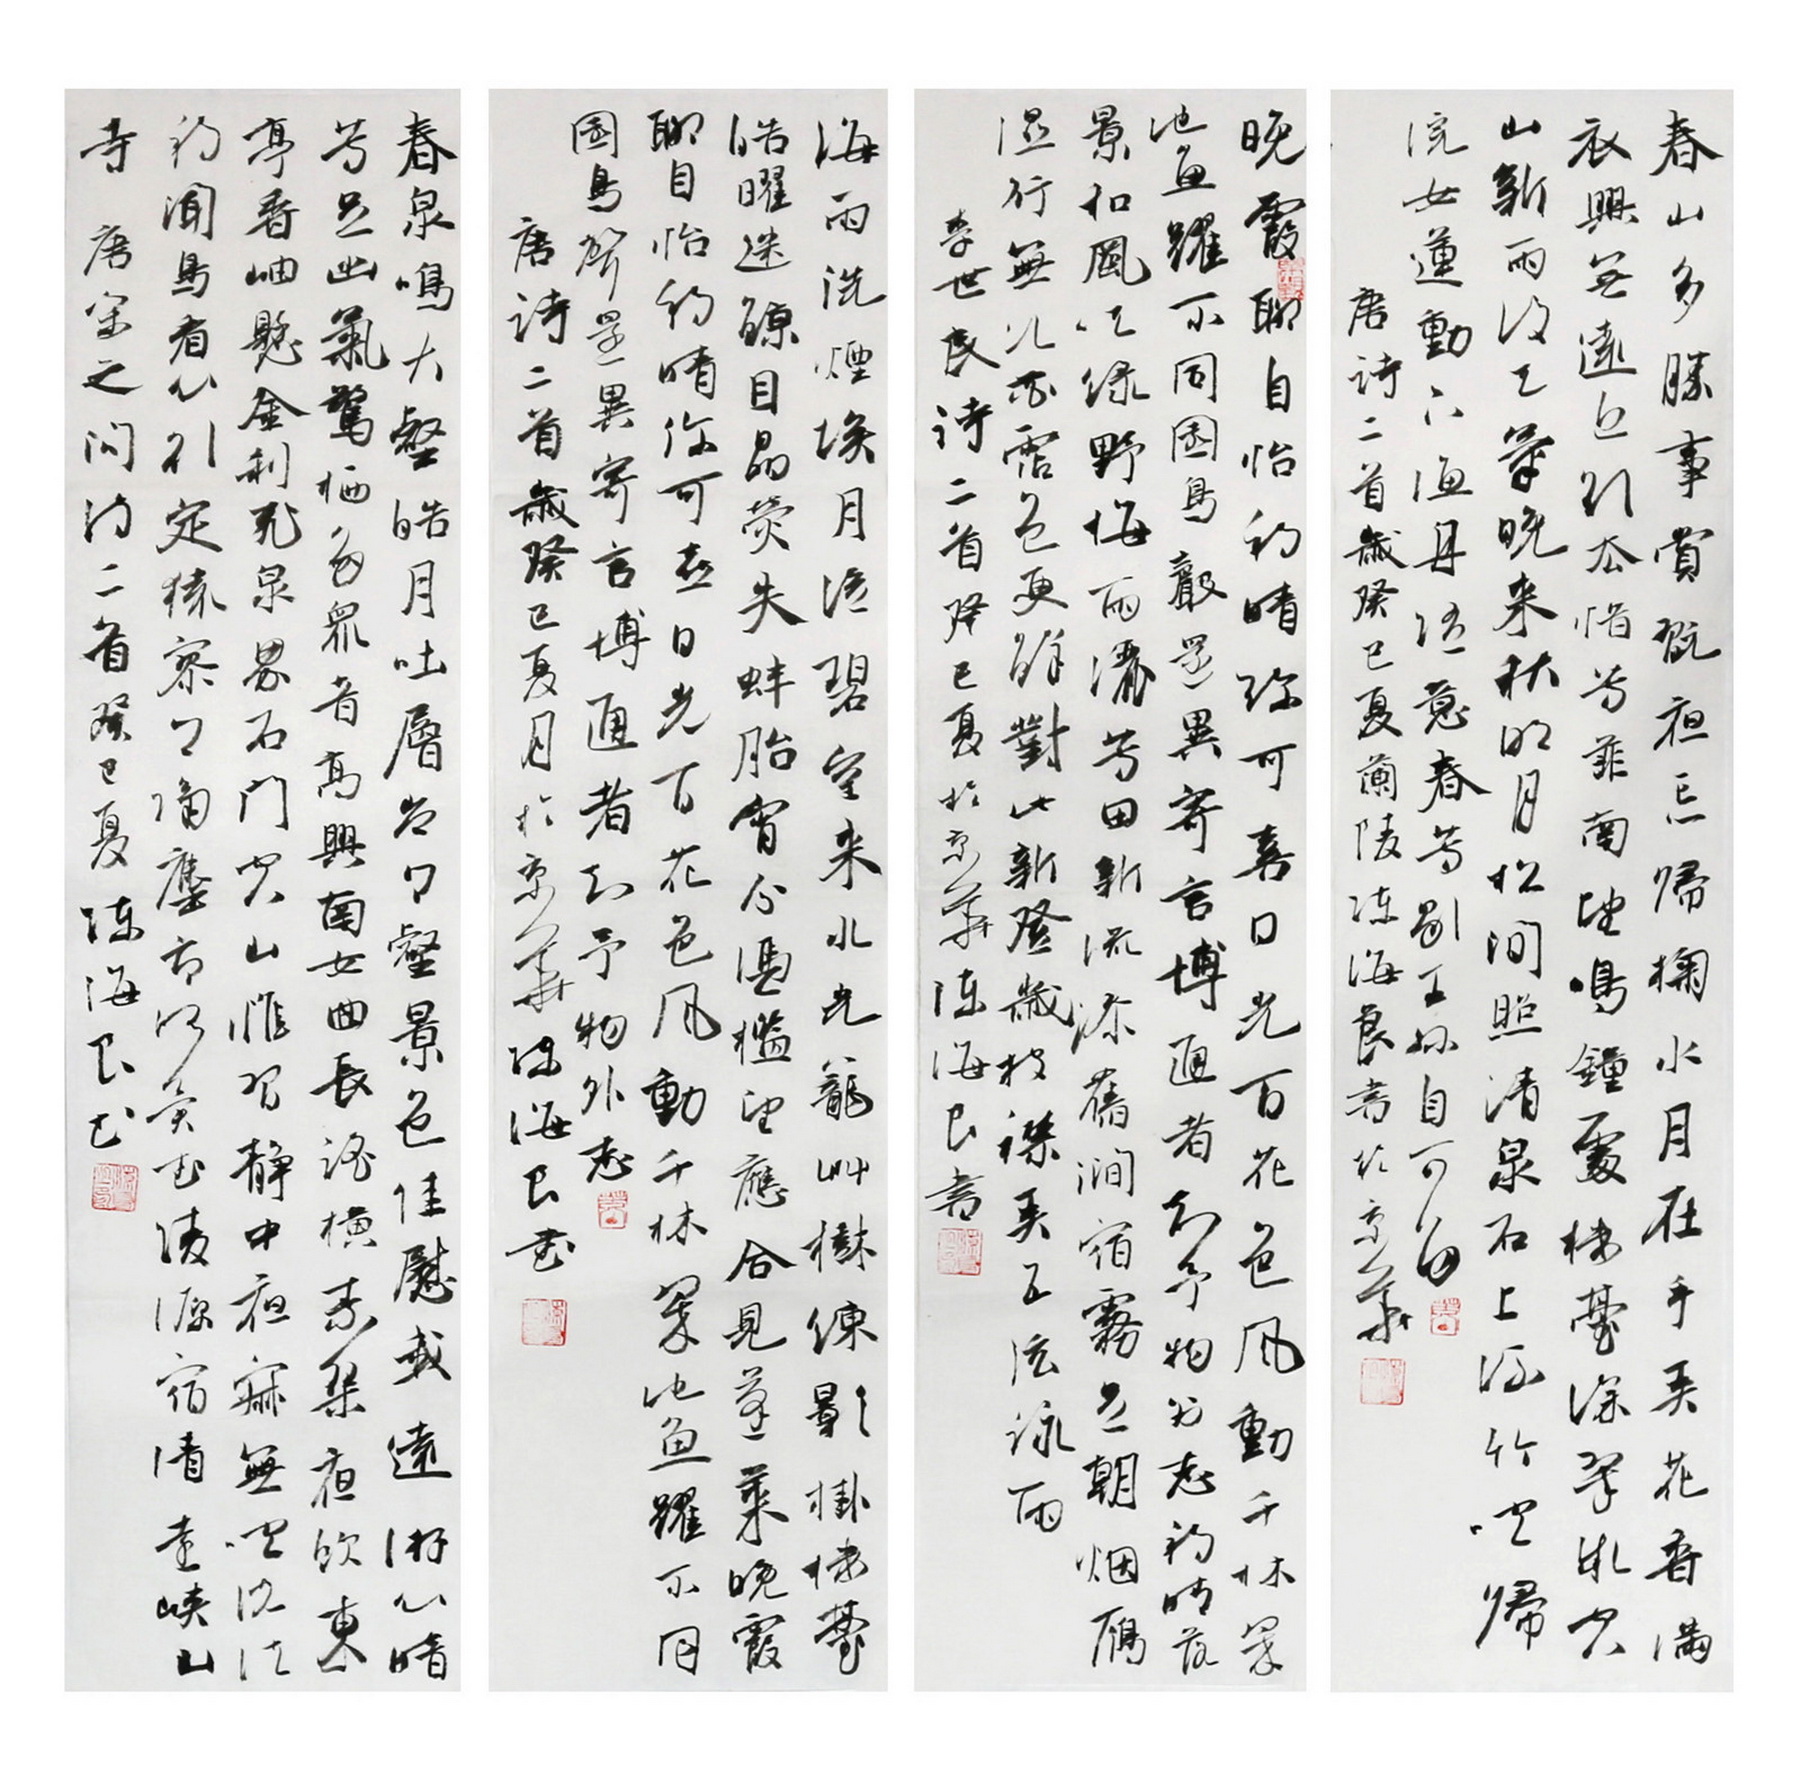 春山多勝事賞翫夜忘歸掬水月在手弄花香滿
衣興無遠近欲去惜芳菲南望鳴鐘處樓臺深翠微空
山新雨後天氣晚来秋明月松間照清泉石上流竹喧歸
浣女蓮動下漁舟隨意春芳歇王孫自可留
唐詩二首歲癸巳夏蘭陵陳海良書於京華
晚霞聊自怡初晴弥可喜日光百花色風動千林翠
池魚躍不同園鳥聲還異寄言博通者知予物外志初晴落
景和風吹绿野梅雨灑芳田新流添舊澗宿霧足朝烟雁
湿行無次花霑色更鮮對此新登歲披襟弄五弦詠雨
李世民詩二首癸巳夏於京華陳海良書
海雨洗煙埃月從碧空来水光籠艸樹練影掛樓臺
皓曜迷鯨目晶熒失蚌胎宵分憑檻望應合見蓬萊晚霞
聊自怡初晴弥可喜日光百花色風動千林翠池魚躍不同
園鳥聲還異寄言博通者知予物外志
唐詩二首歲癸巳夏月於京華陳海良書
春泉鳴大壑皓月吐層岑岑壑景色佳慰我遠游心暗
芳足幽氣驚栖多眾音高興南山曲長謠橫素琴夜飲東
亭香岫懸金刹飛泉界石門空山惟習静中夜寂無喧說法
初聞鳥看心欲定猿寥寥隔塵市何異武陵源宿清遠峽山
寺 唐宋之问詩二首癸巳夏陳海良書